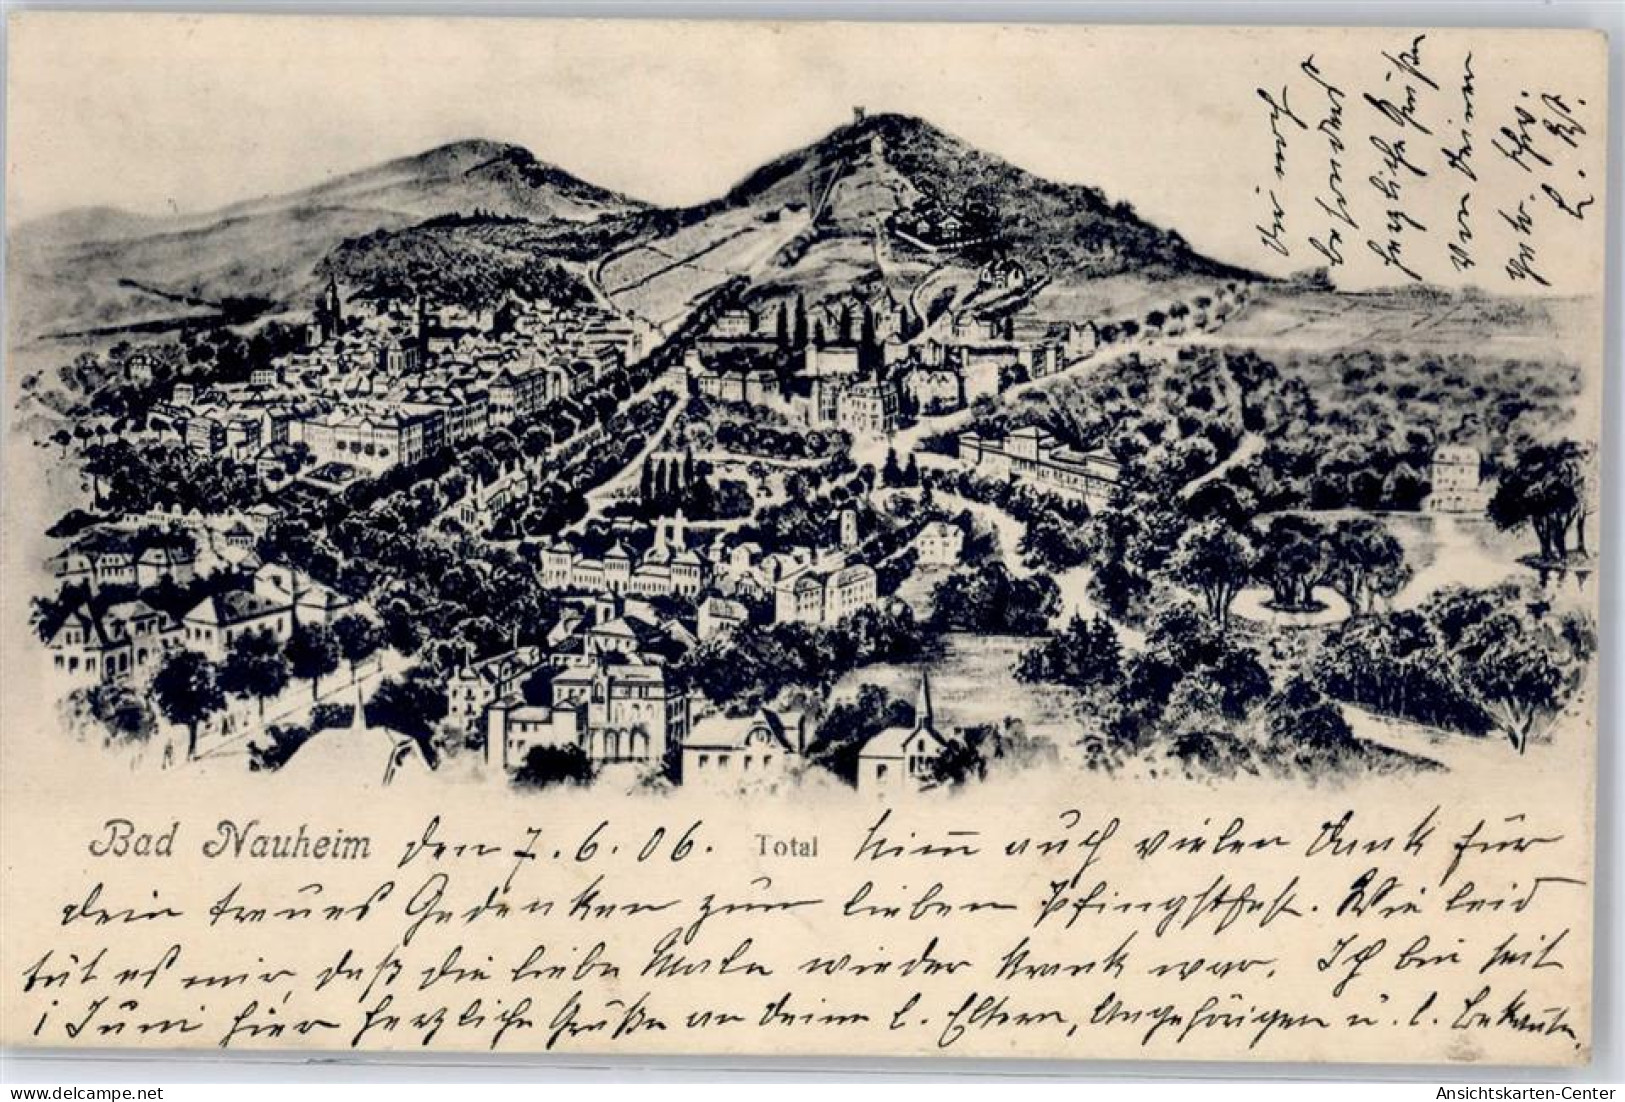 Bad Nauheim den 7. 6. 06. Total Nimm auch vielen Dank für
dein treues Gedenken zum lieben Pfingstfest. Wie leid
tut es mir, daß die liebe Maln wieder krank war. Ich bin seit
1 Juni hier herzliche Grüße an deine l. Eltern, Angehörigen u. l. Bekannte.
Dir
besonders
herzliche Grüße
von
Ansichtskarten-Center